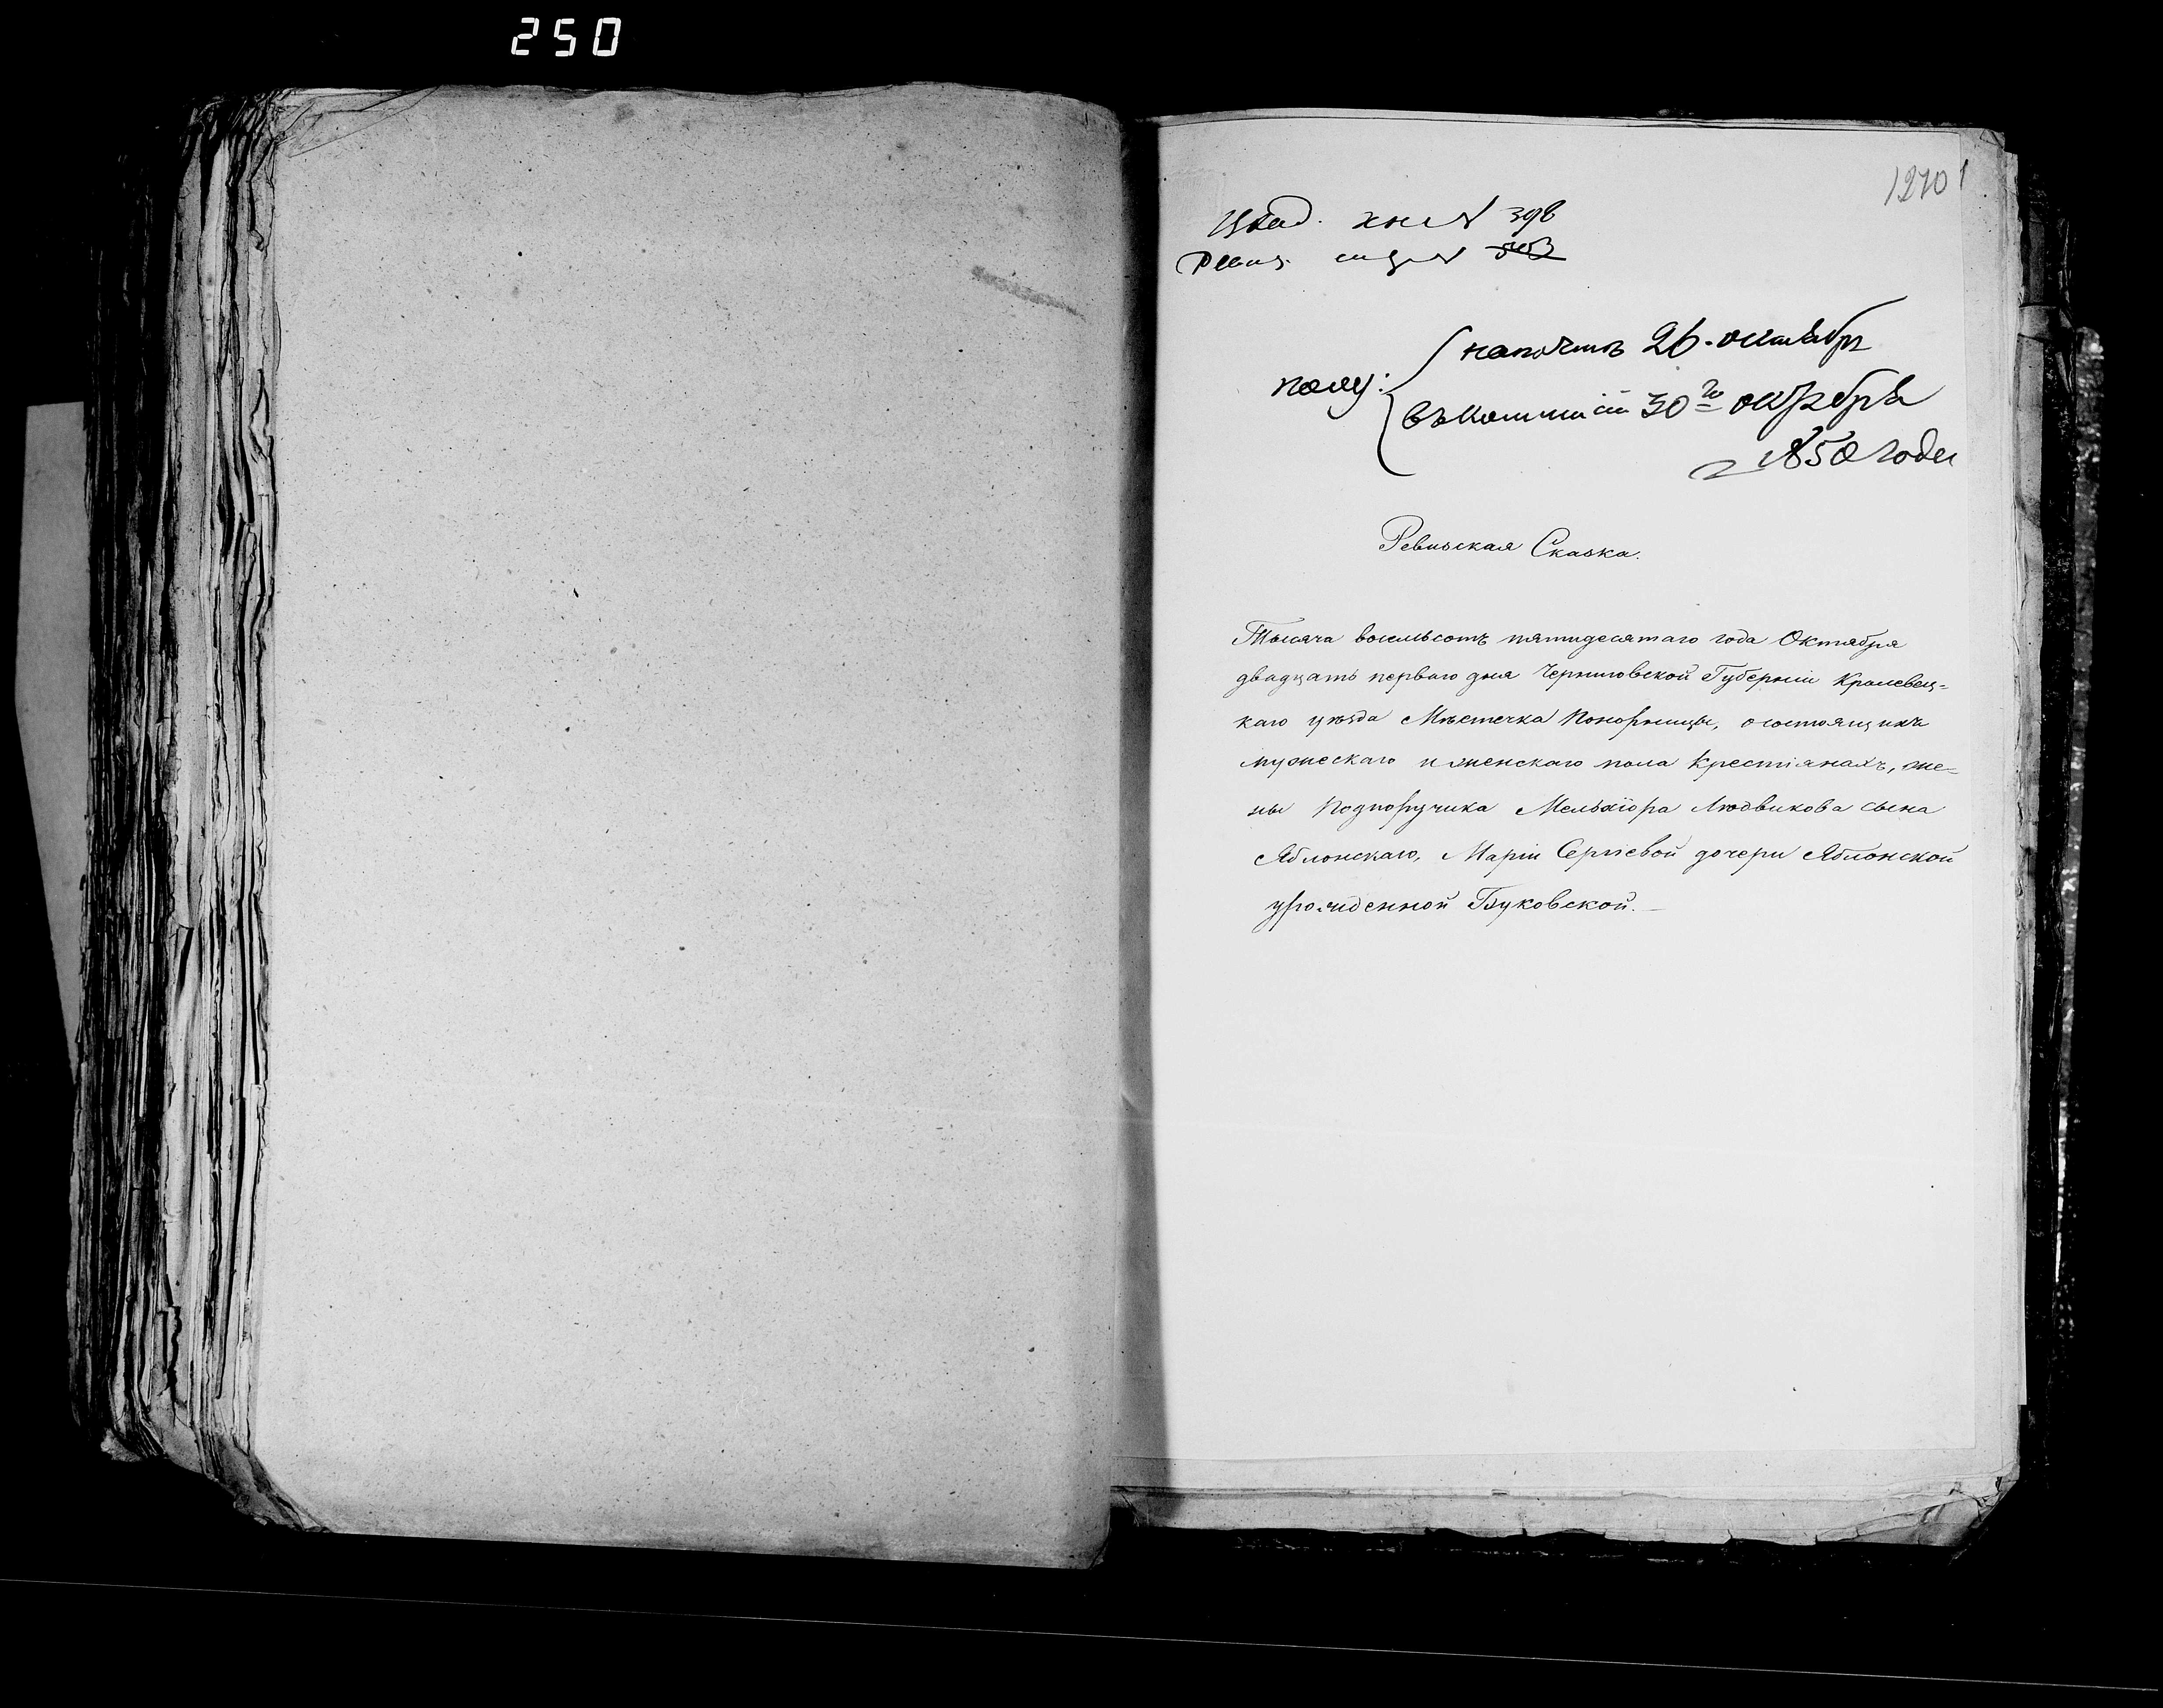 250
1270 1
кн № 398
Ревиз. №
на почтѣ 26. октября
полу:
въ Коммисіи 30го октября
1850 года
Ревизская Сказка.
Тысяча восемьсотъ пятидесятаго года Октября
двадцать перваго дня Черниговской Губерніи Кролевец=
каго уѣзда Мѣстечка Понорницы, о состоящихъ
мужескаго и женскаго пола Крестіанахъ, же-
ны Подпоручика Мельхіора Людвикова сына
Яблонскаго, Маріи Сергіевой дочери Яблонской
урожденной Буковской.—